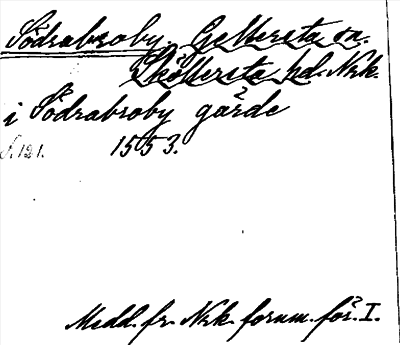 Södrabroby. Gellersta sn.
Sköllersta hd. Nrk.
i Södrabroby gärde
S. 121. 1553.
Medd. fr. Nrk. fornm. för. I.